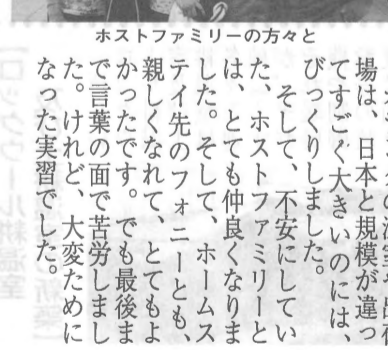 ホストファミリーの方々と
場は、日本と規模が違っ
てすごく大きいのには、
びっくりしました。
そして、不安にしてい
た、ホストファミリーと
は、とても仲良くなりま
した。そして、ホームス
テイ先のフォニーとも、
親しくなれて、とてもよ
かったです。でも最後ま
で言葉の面で苦労しまし
た。けれど、大変ために
なった実習でした。